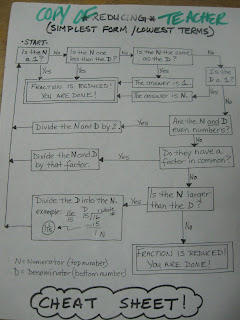 COPY OF REDUCING * TEACHER
(SIMPLEST FORM / LOWEST TERMS)
• START •
Is the N a 1?
No
Is the N one less than the D?
No
Is the N the same as the D?
No
Yes
Yes
Yes
Is the D a 1?
The answer is 1.
The answer is N.
Yes
FRACTION IS REDUCED!
YOU ARE DONE!
No
Divide the N and D by 2.
Yes
Are the N and D even numbers?
No
Divide the N and D by that factor.
Yes
Do they have a factor in common?
No
Divide the D into the N.
example:
Yes
Is the N larger than the D?
No
FRACTION IS REDUCED!
YOU ARE DONE!
N = Numerator (top number)
D = Denominator (bottom number)
CHEAT SHEET!